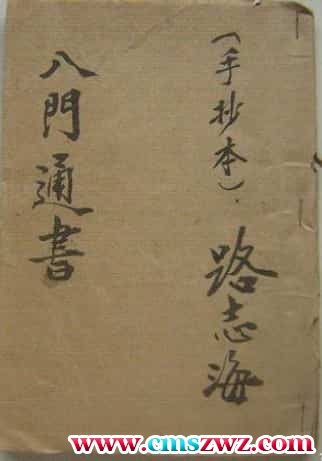 （手抄本）
路志海
八門通書
www.cmszwz.com